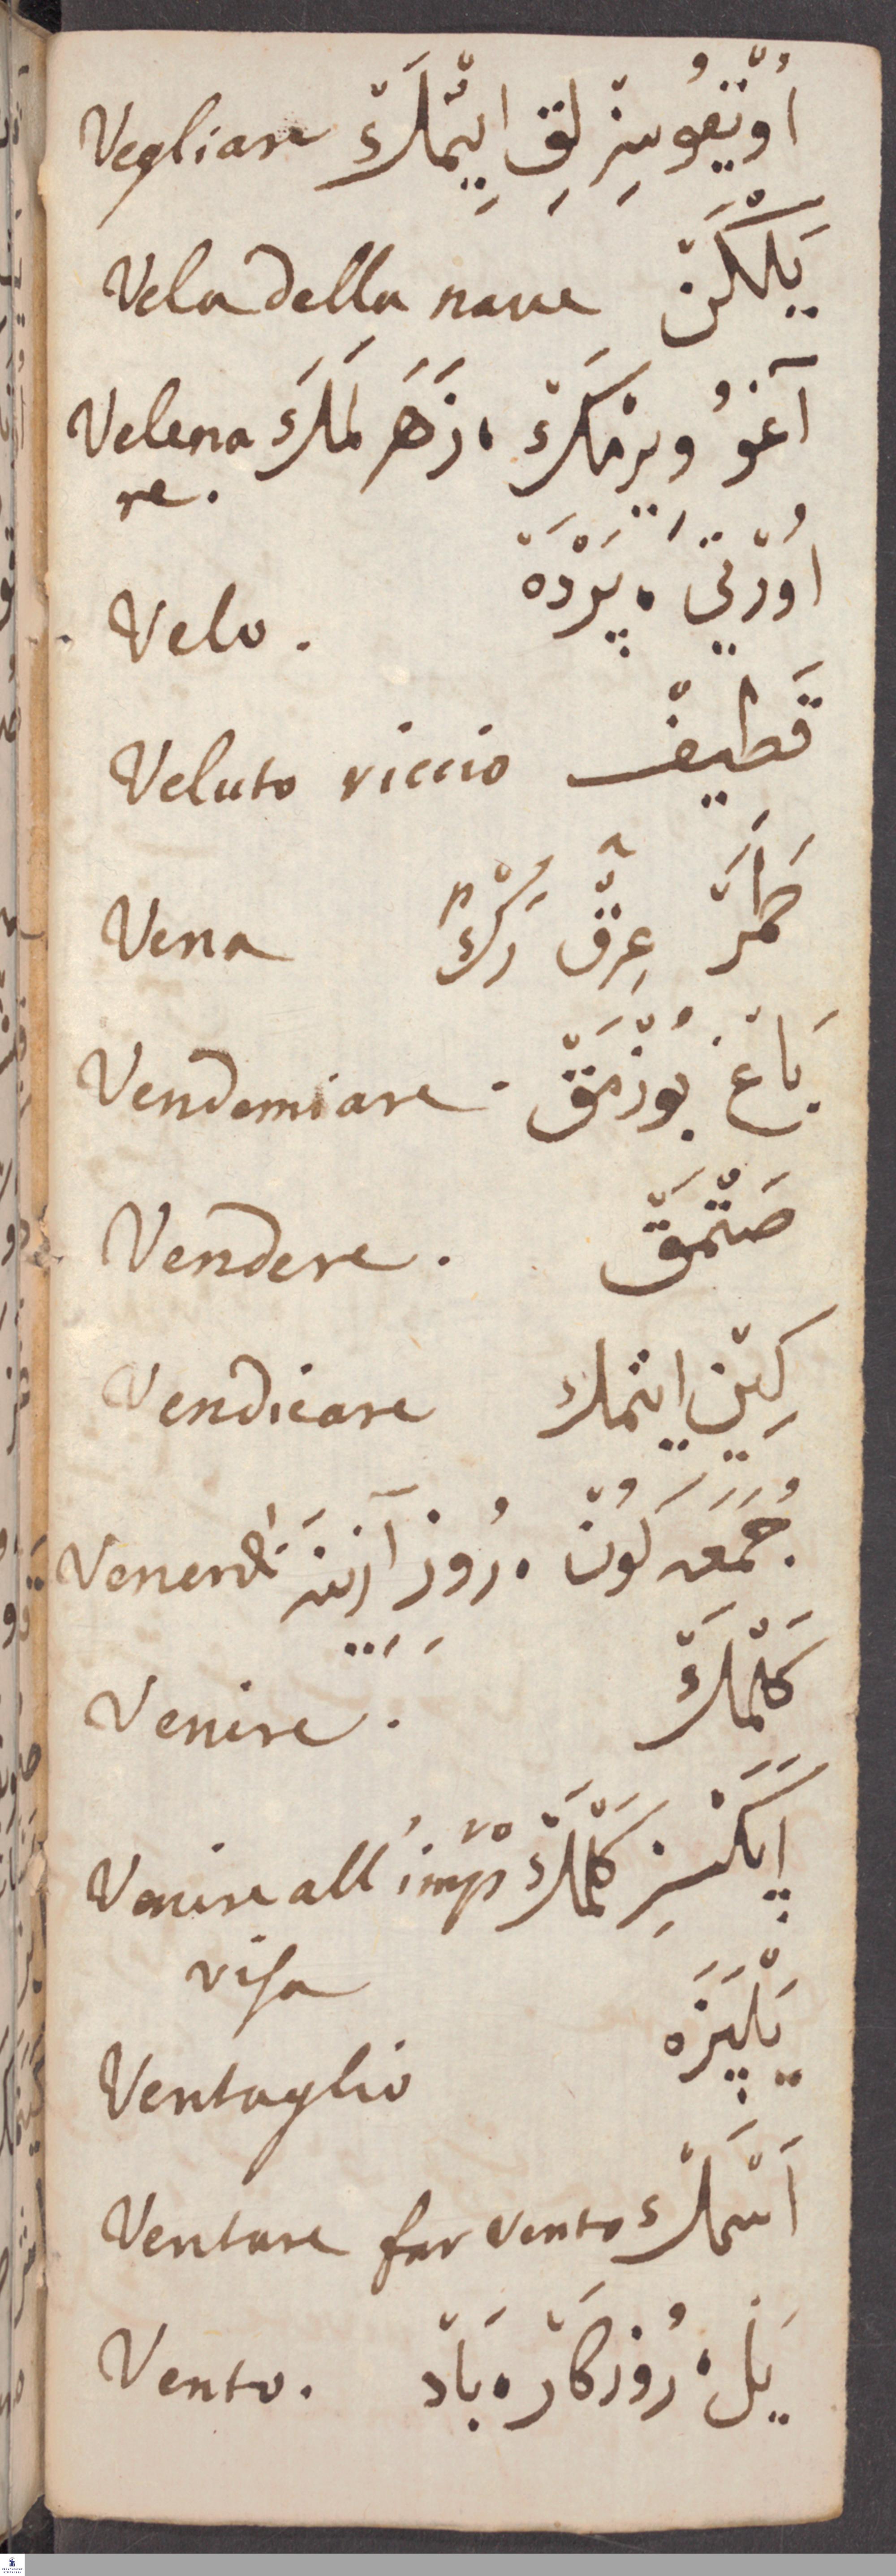 Vegliare اُوْيْقُوسِزْلِقِ ايِتْمَكْ
Vela della naue يَلْكَنْ
Velena آغُو وِيرْمَكْ ، زَهَرْلَمَكَ
re.
Velo. اُورْتِي ، پَرْدَهْ
Veluto riccio قَطِيفْ
Vena طَمَرْ عِرْقْ a رَكْ p
Vendemiare. بَاغْ بُوزْمَقْ
Vendere. صَتْمَقْ
Vendicare كِينْ ايتمك
Venerdi جُمَعَه كُونْ ، رُوزِ آزِينَه
Venire. كَلْمَكْ
Venire all'impro اپَكْسِزِ كَلْمَكْ
visa
Ventaglio يَلْپَزَه
Ventare far vento اَسْمَكْ
Vento. يَل ، رُوزكَارْ ، بَادْ